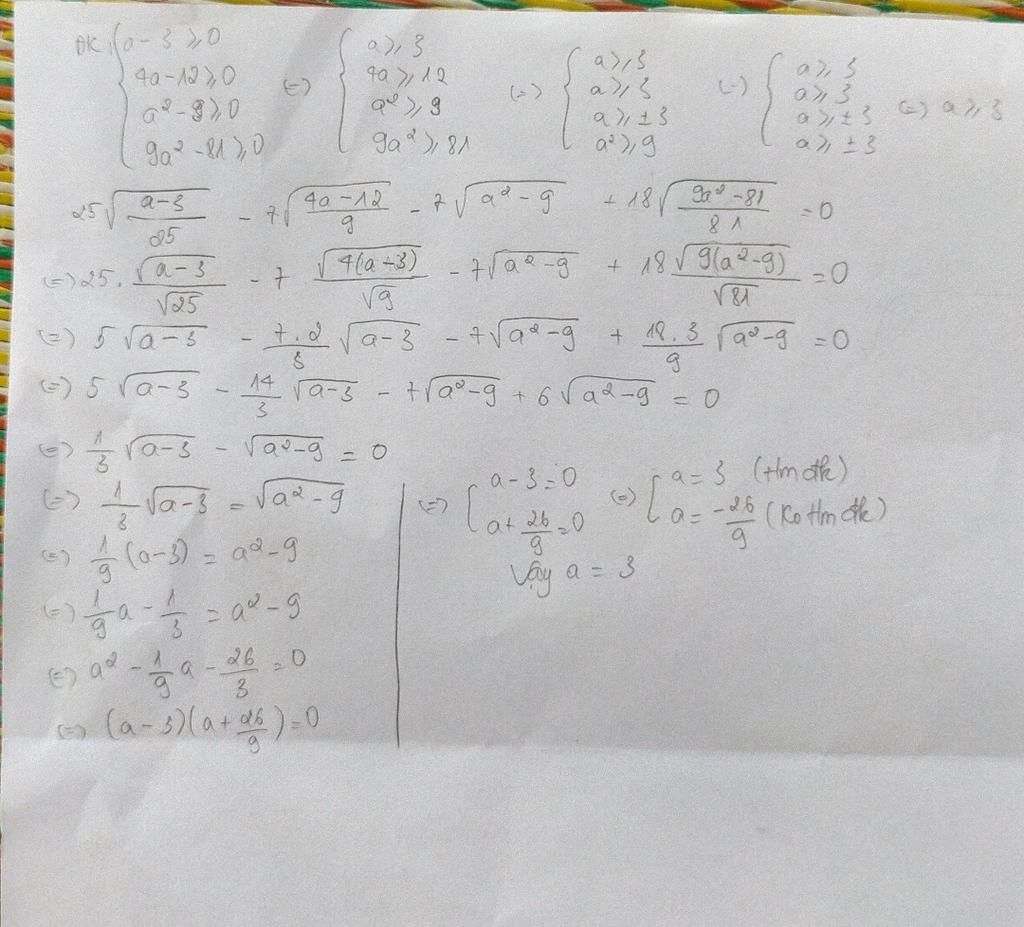 ĐK: { a - 3 ⩾ 0 (=) { a ⩾ 3 (=) { a ⩾ 3 (=) { a ⩾ 3 (=) a ⩾ 3
4a - 12 ⩾ 0 4a ⩾ 12 a ⩾ 3 a ⩾ 3
a² - 9 ⩾ 0 a² ⩾ 9 a ⩾ ±3 a ⩾ ±3
9a² - 81 ⩾ 0 9a² ⩾ 81 a² ⩾ 9 a ⩾ ±3
25√((a-3)/25) - 7√((4a-12)/9) - 7√(a²-9) + 18√((9a²-81)/81) = 0
(=) 25. √(a-3)/√25 - 7 √(4(a+3))/√9 - 7√(a²-9) + 18 √(9(a²-9))/√81 = 0
(=) 5√(a-3) - (7.2)/3 √(a-3) - 7√(a²-9) + (18.3)/9 √(a²-9) = 0
(=) 5√(a-3) - 14/3 √(a-3) - 7√(a²-9) + 6√(a²-9) = 0
(=) 1/3 √(a-3) - √(a²-9) = 0
(=) 1/3 √(a-3) = √(a²-9)
(=) 1/9 (a-3) = a² - 9
(=) 1/9 a - 1/3 = a² - 9
(=) a² - 1/9 a - 26/3 = 0
(=) (a-3)(a + 26/9) = 0
(=) [ a - 3 = 0 (=) [ a = 3 (tm đk)
a + 26/9 = 0 a = -26/9 (Ko tm đk)
Vậy a = 3